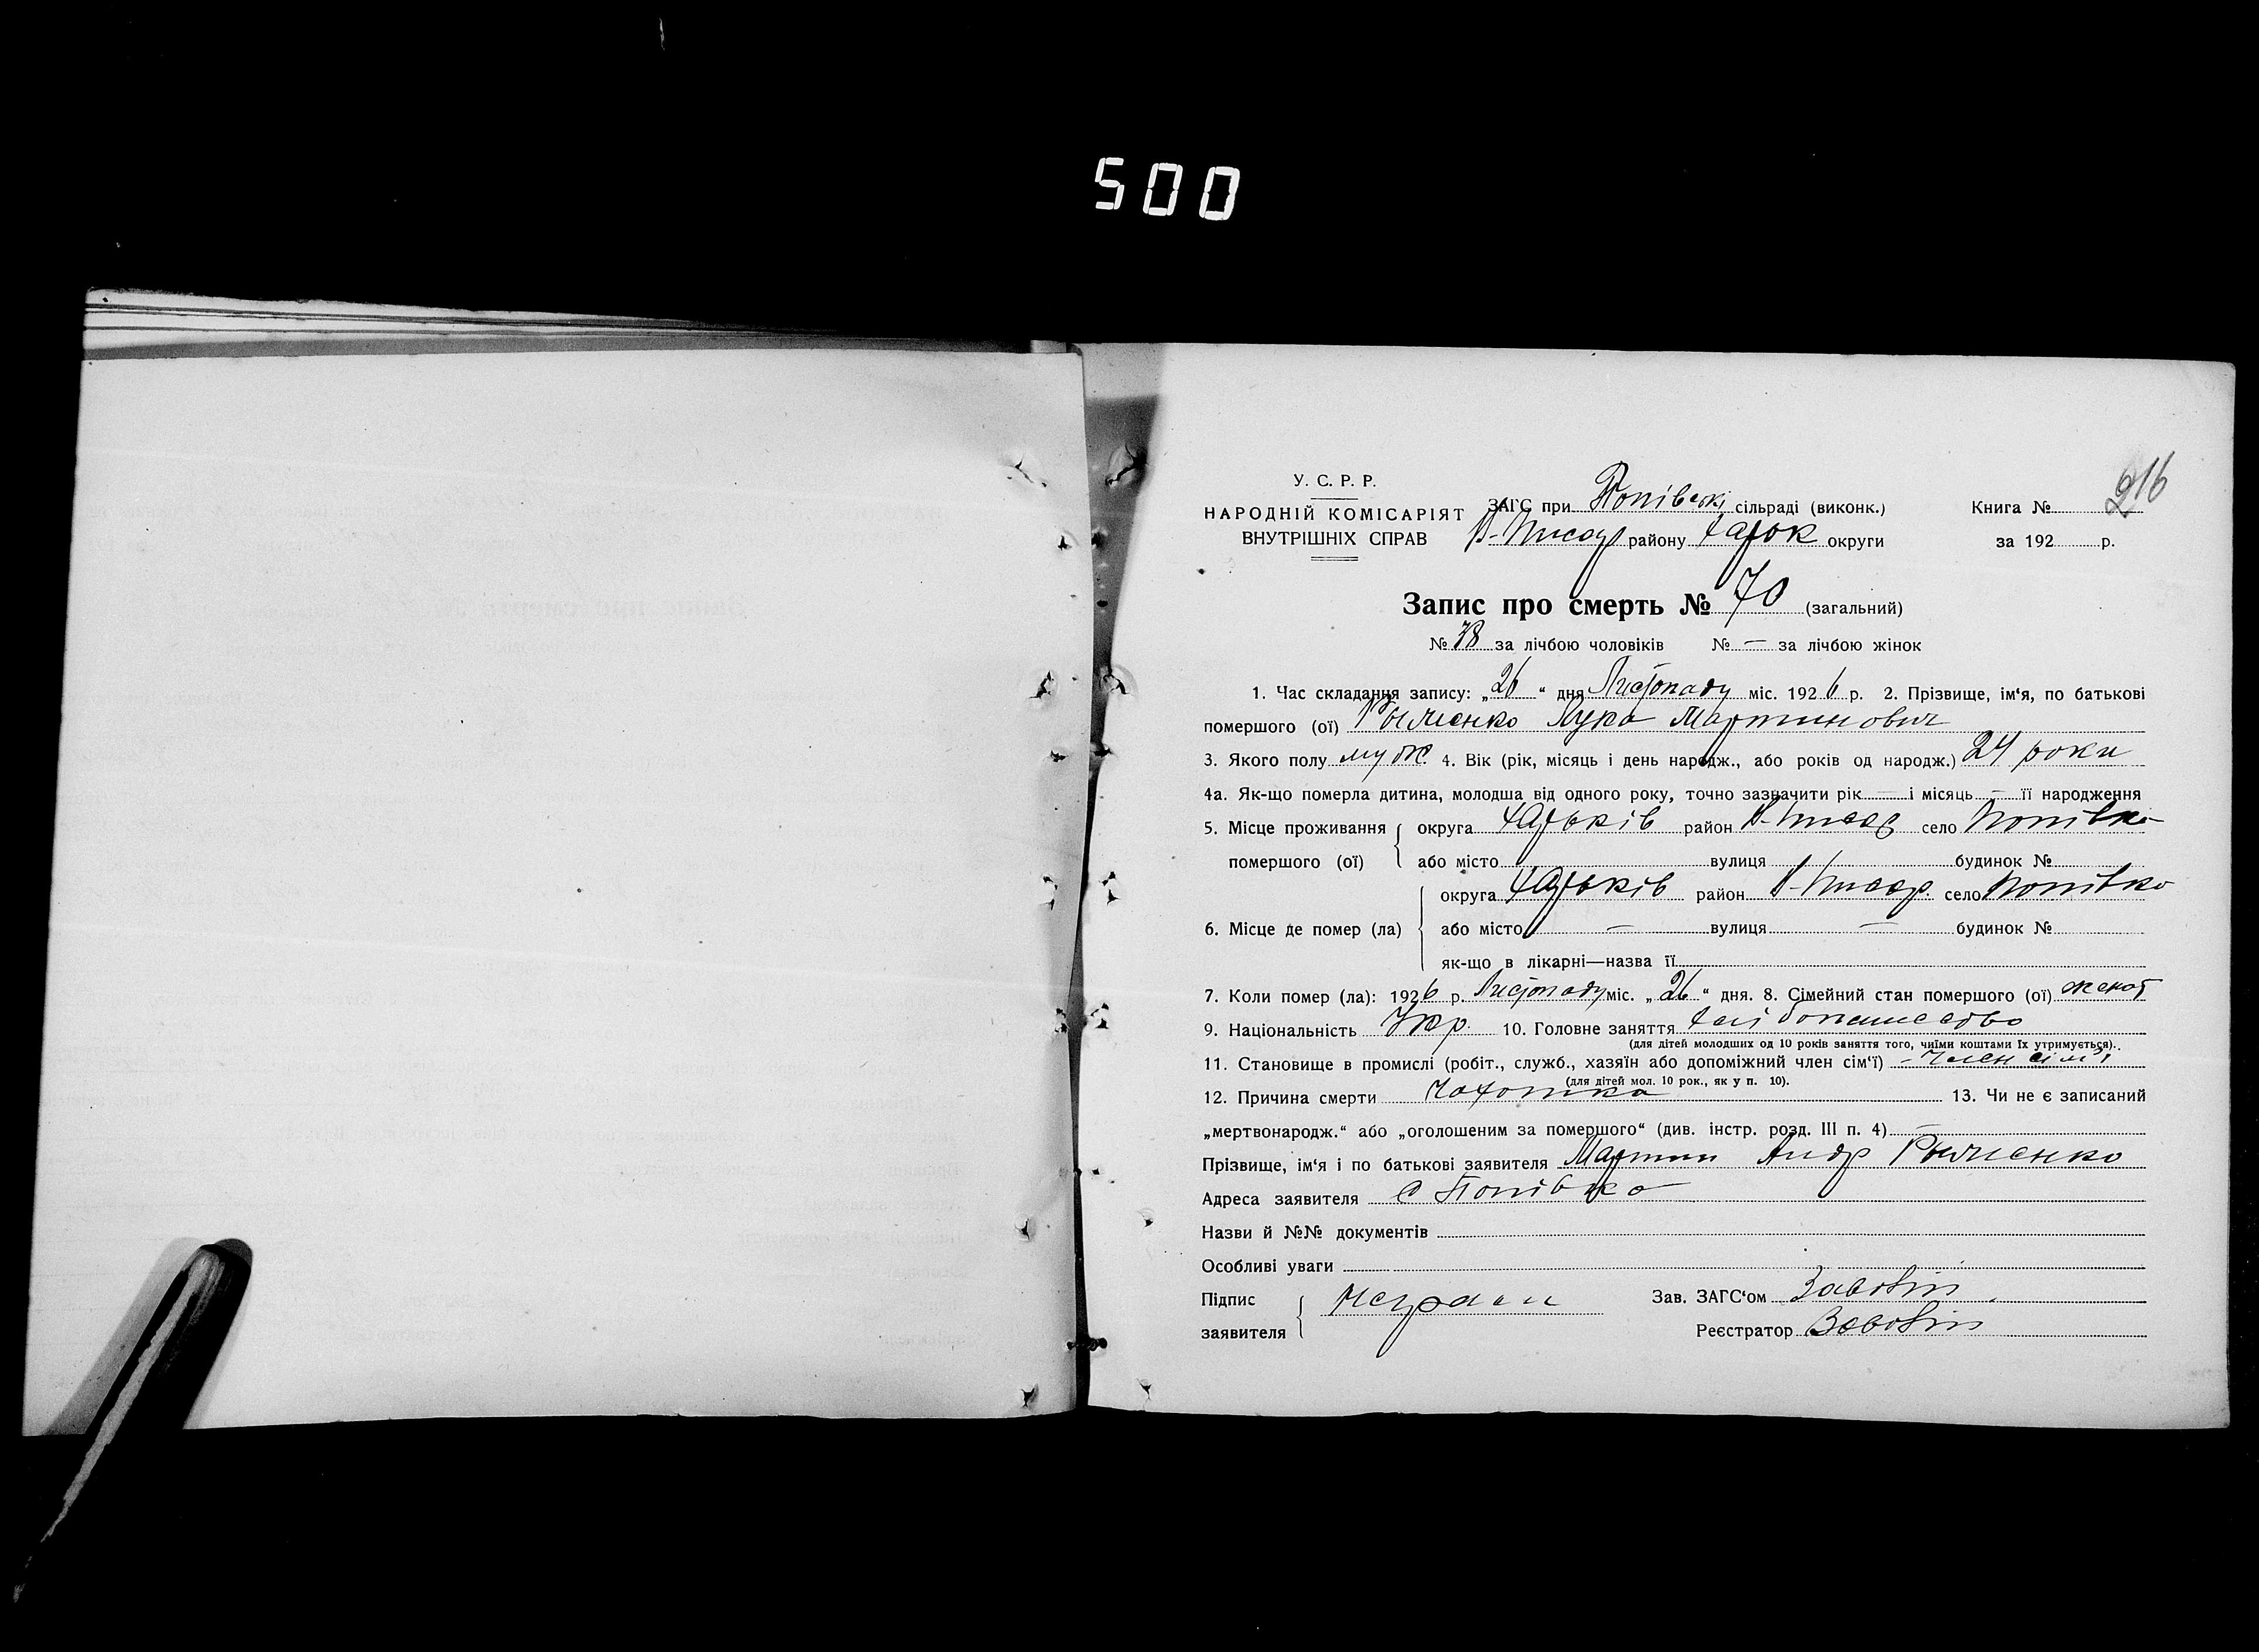 500
216
У. С. Р. Р.
НАРОДНІЙ КОМІСАРІЯТ
ВНУТРІШНІХ СПРАВ
ЗАГС при Попівскі сільраді (виконк.)
В-Писар району Харок округи
Книга №
за 192 р.
Запис про смерть № 70 (загальний)
№ 38 за лічбою чоловіків № — за лічбою жінок
1. Час складання запису: „26“ дня Листопаду міс. 1926 р. 2. Прізвище, ім‘я, по батькові
помершого (ої) Лука Мартинович
3. Якого полу муж. 4. Вік (рік, місяць і день народж., або років од народж.) 24 роки
4а. Як-що померла дитина, молодша від одного року, точно зазначити рік — і місяць — її народження
5. Місце проживання помершого (ої) округа Харьків район В-Писар село Попівка
або місто вулиця будинок №
6. Місце де помер (ла) округа Харьків район В-Писар. село Попівка
або місто — вулиця — будинок №
як-що в лікарні—назва її
7. Коли помер (ла): 1926 р. Листопаду міс. „26“ дня. 8. Сімейний стан помершого (ої) женат
9. Національність Укр. 10. Головне заняття
(для дітей молодших од 10 років заняття того, чиїми коштами їх утримується).
11. Становище в промислі (робіт., служб., хазяїн або допоміжний член сім‘ї) - член сім'ї
(для дітей мол. 10 рок., як у п. 10).
12. Причина смерти Чахотка 13. Чи не є записаний
„мертвонародж.“ або „оголошеним за помершого“ (див. інстр. розд. III п. 4) —
Прізвище, ім‘я і по батькові заявителя Мартин Андр
Адреса заявителя с Попівка
Назви й №№ документів
Особливі уваги
Підпис заявителя
Зав. ЗАГС‘ом
Реєстратор